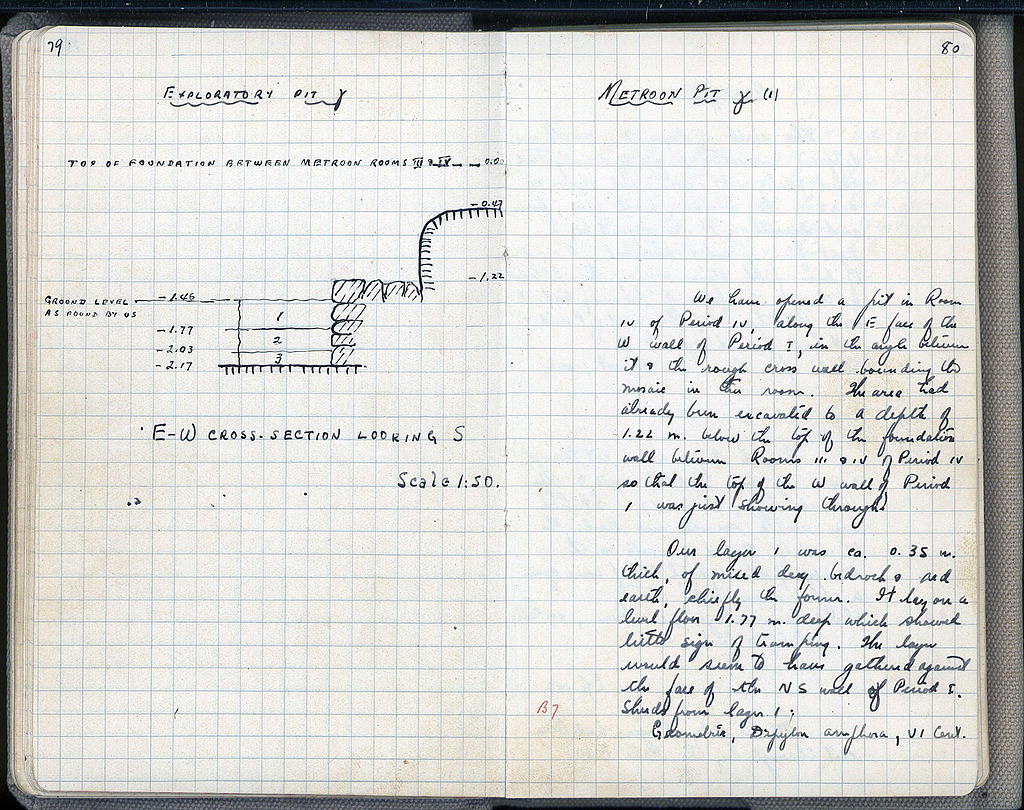 79
EXPLORATORY PIT γ
TOP OF FOUNDATION BETWEEN METROON ROOMS III & IV — — 0.0
-0.47
-1.22
GROUND LEVEL
AS FOUND BY US
-1.46
-1.77
-2.03
-2.17
1
2
3
E-W CROSS-SECTION LOOKING S
Scale 1:50.
80
METROON PIT γ (1)
We have opened a pit in Room
IV of Period IV, along the E face of the
W wall of Period I, in the angle between
it & the rough cross wall bounding the
mosaic in this room. The area had
already been excavated to a depth of
1.22 m. below the top of the foundation
wall between Rooms III & IV of Period IV
so that the top of the W wall of Period
I was just showing through.
Our layer 1 was ca. 0.35 m.
thick, of mixed dug bedrock & red
earth, chiefly the former. It lay on a
level floor 1.77 m. deep which showed
little sign of tramping. The layer
would seem to have gathered against
the face of the NS wall of Period I.
Sherds from layer 1:
B7
Geometric, Dipylon amphora, VI Cent.